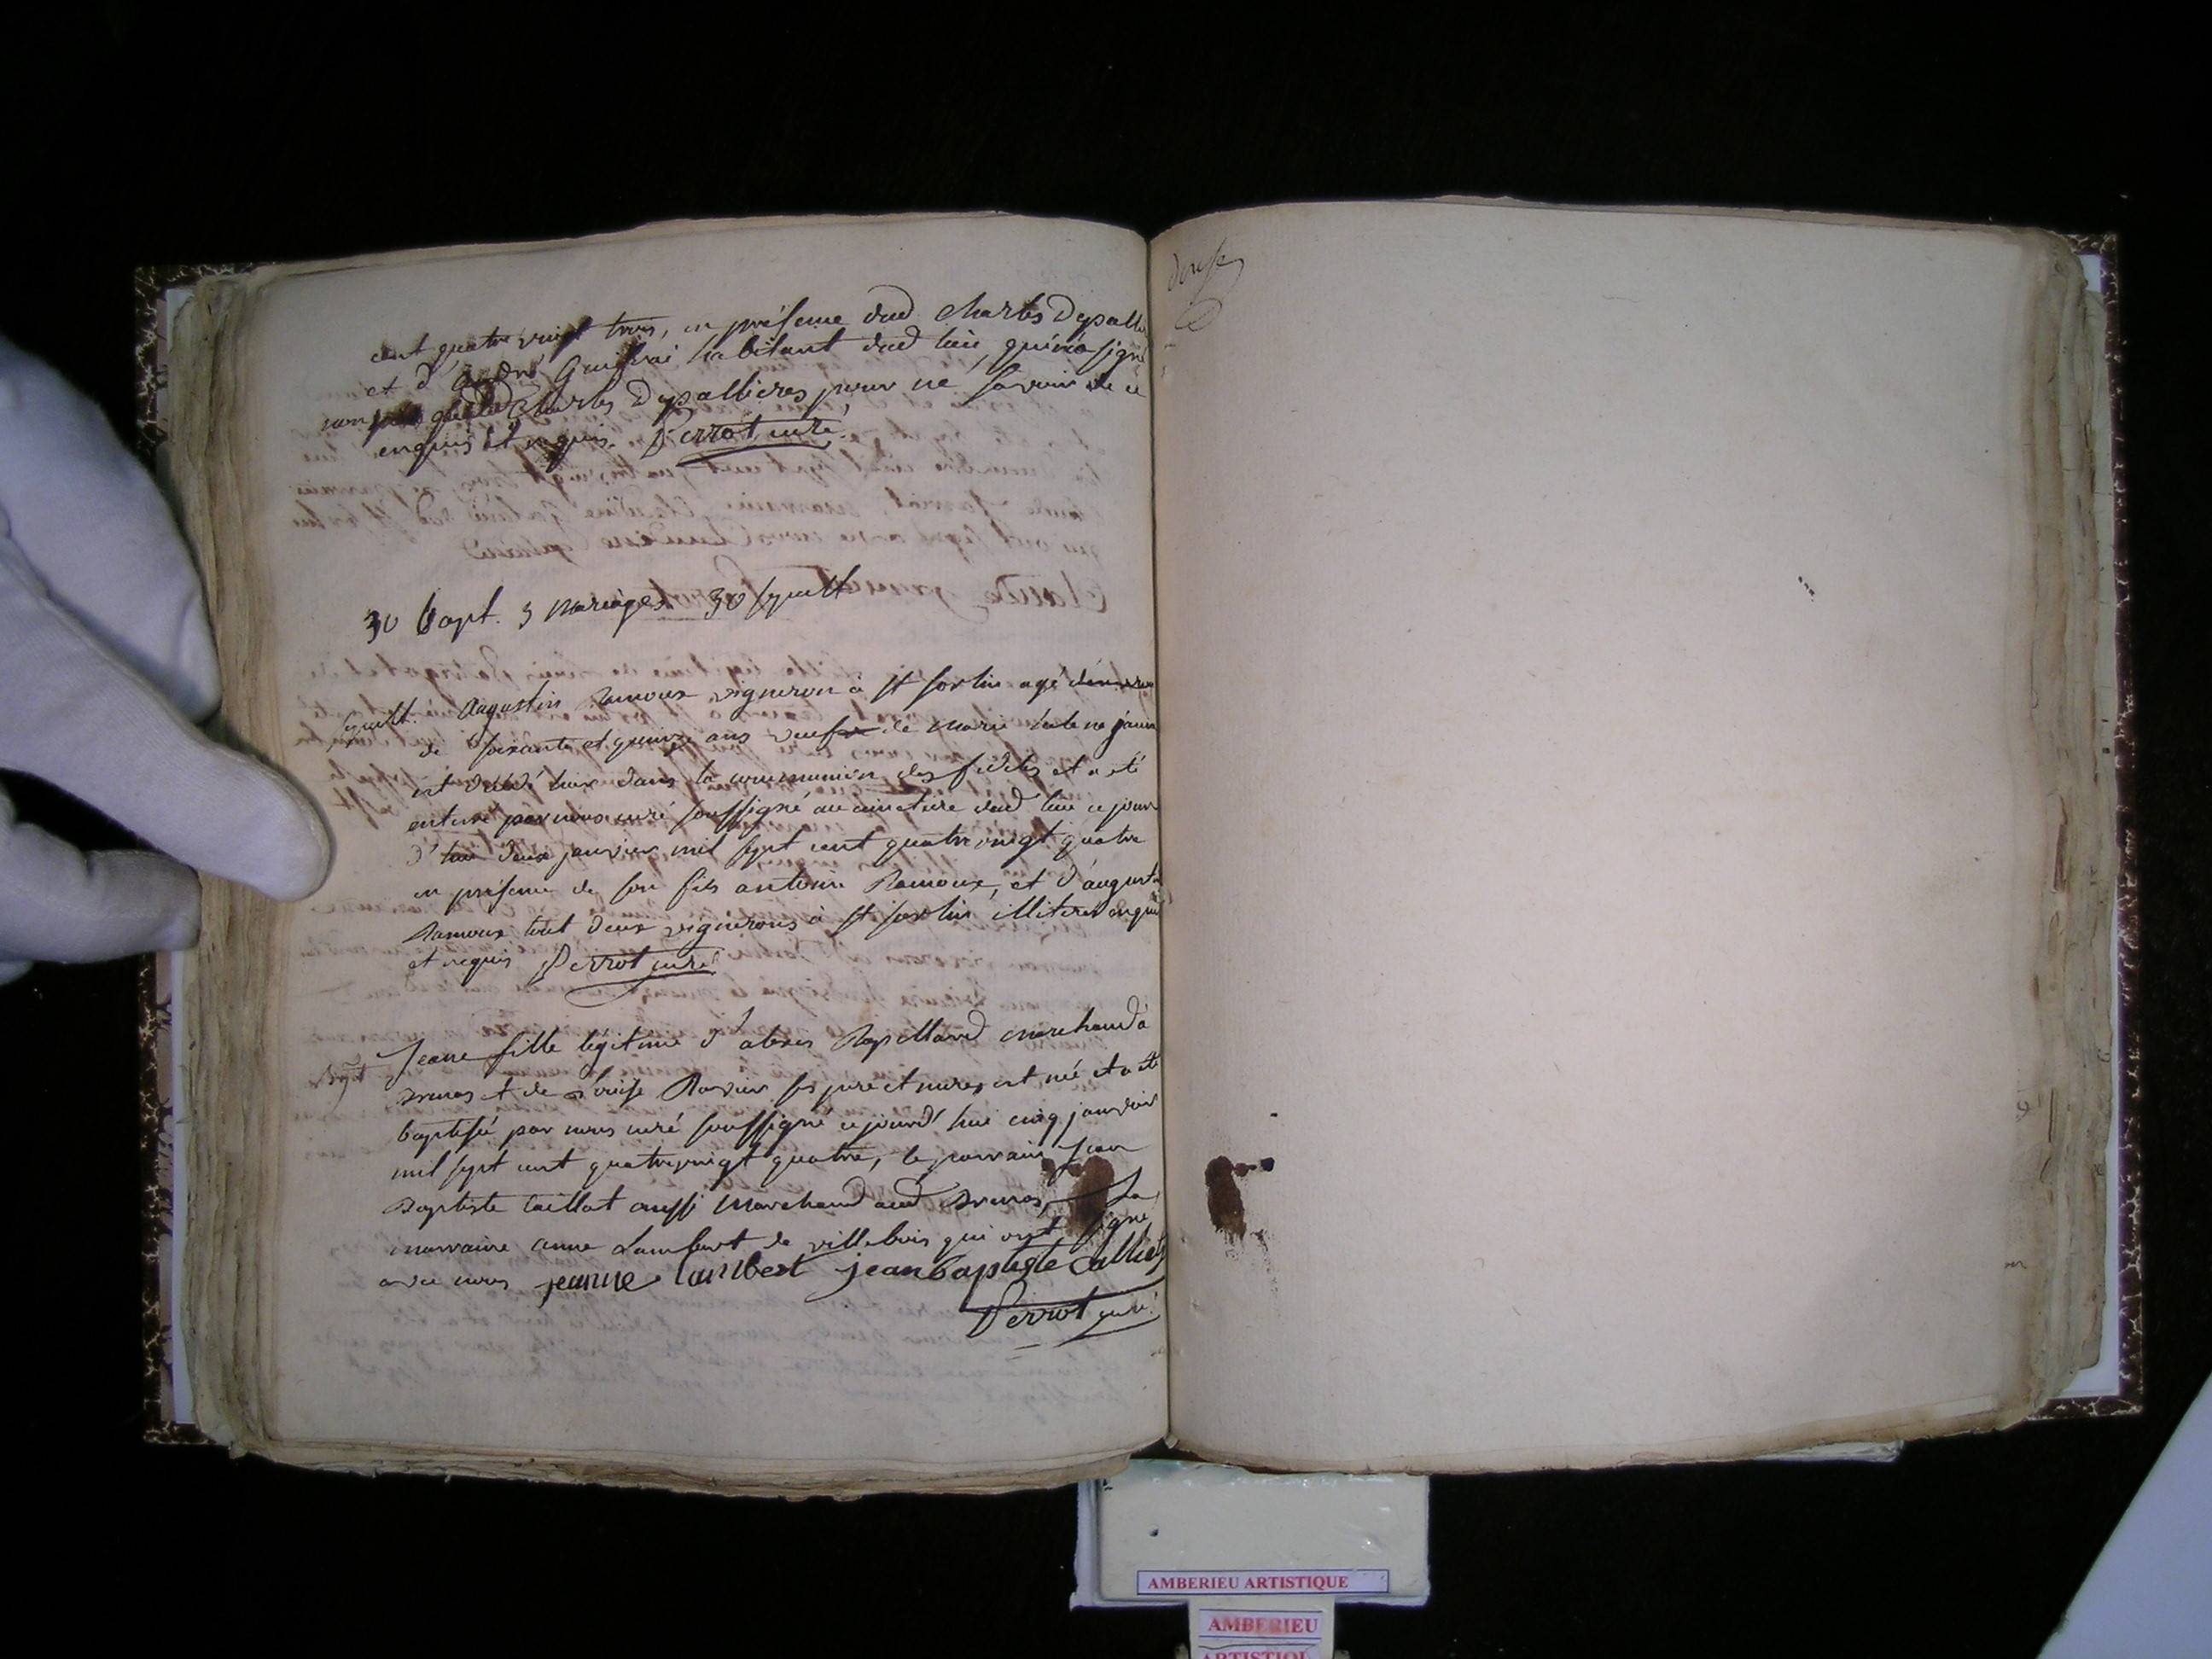 cent quatre vingt trois, en présence dud Charles Depalli
et d'André habitant dud lieu, qui n'a signé
non plus que led Charles Depallieres pour ne savoir de ce
enquis et requis. Perrot curé
30 bapt. 3 mariages 30 sepult
sepult. Augustin Ramoux vigneron à st sorlin agé
de soixante et quinze ans veuf de marie
est décédé hier dans la communion des fideles et a été
enterré par nous curé soussigné au cimetiere dud lieu ce jour
d'hui deux janvier mil sept cent quatre vingt quatre
en présence de son fils antoine Ramoux, et d'august
Ramoux tout deux vignerons à st sorlin illiterés enquis
et requis Perrot curé
bapt Jeane fille légitime d'alexis Rapillard marchand à
et de Louise Ravier ses pere et mere, est née et a été
baptisée par nous curé soussigné ce jourd'hui cinq janvier
mil sept cent quatre vingt quatre, le parrain Jean
Baptiste Caillat aussi marchand aud La
marraine anne Lambert de villebois qui ont signé
avec nous jeanne lambert jean baptiste
Perrot curé
douze
AMBERIEU ARTISTIQUE
AMBERIEU
ARTISTIQUE